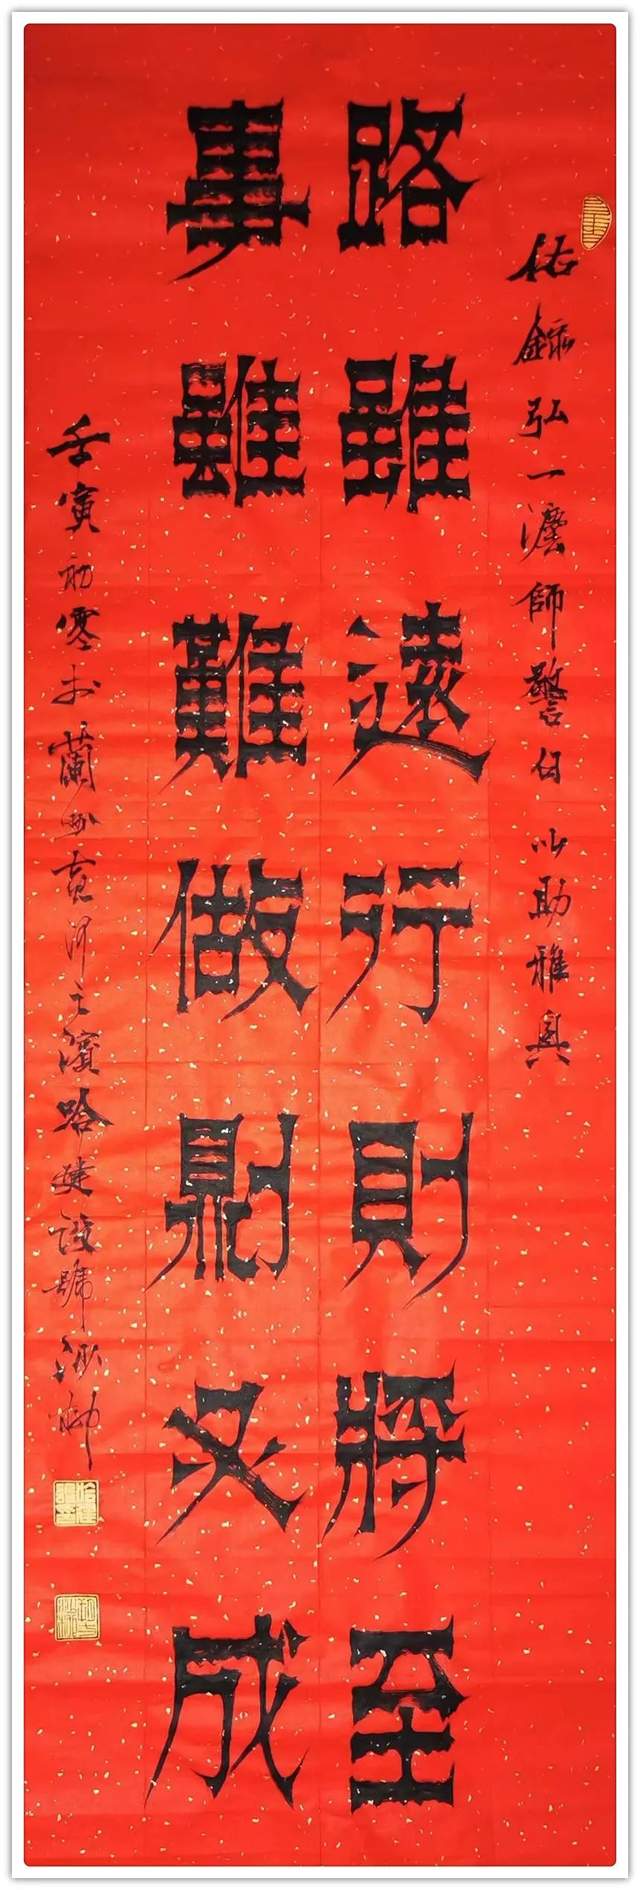 錄弘一灋師警句以助雅興
路雖遠行則將至
事雖難做則必成
壬寅初寒於蘭州黃河之濱哈建設號